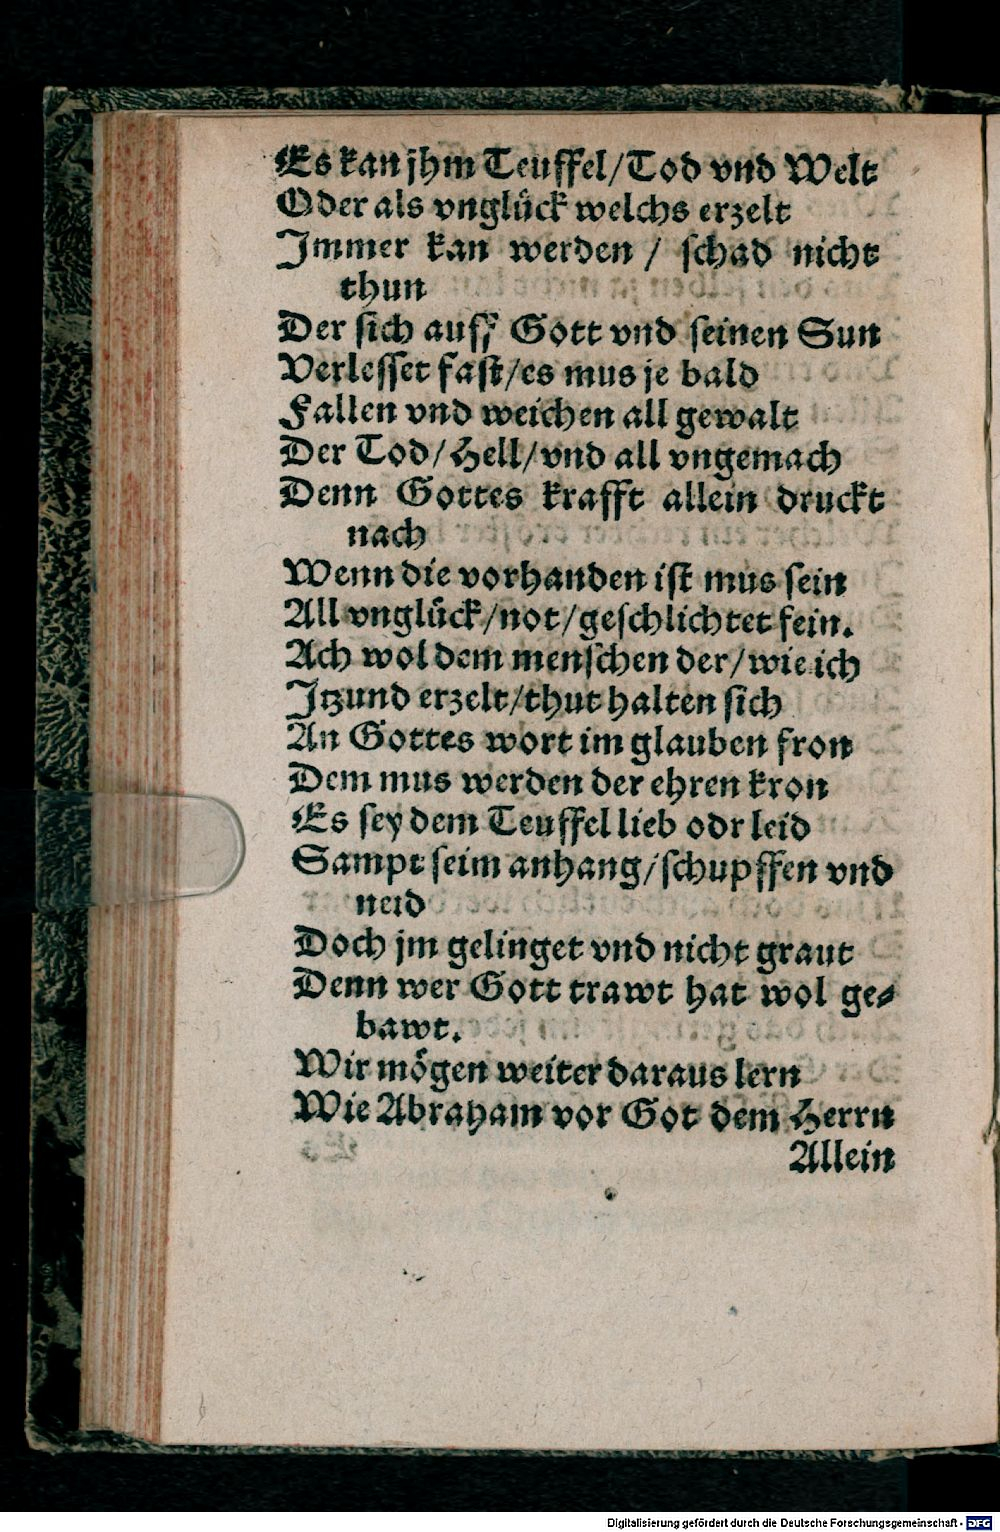 Es kan jhm Teuffel/Tod vnd Welt
Oder als vnglück welchs erzelt
Jmmer kan werden / schad nicht
thun
Der sich auff Gott vnd seinen Sun
Verlesset fast/es mus je bald
Fallen vnd weichen all gewalt
Der Tod/Hell/vnd all vngemach
Denn Gottes krafft allein druckt
nach
Wenn die vorhanden ist mus sein
All vnglück/not/geschlichtet fein.
Ach wol dem menschen der/wie ich
Jtzund erzelt/thut halten sich
An Gottes wort im glauben fron
Dem mus werden der ehren kron
Es sey dem Teuffel lieb odr leid
Sampt seim anhang/schupffen vnd
neid
Doch jm gelinget vnd nicht graut
Denn wer Gott trawt hat wol ge-
bawt.
Wir mögen weiter daraus lern
Wie Abraham vor Got dem Herrn
Allein
Digitalisierung gefördert durch die Deutsche Forschungsgemeinschaft - DFG